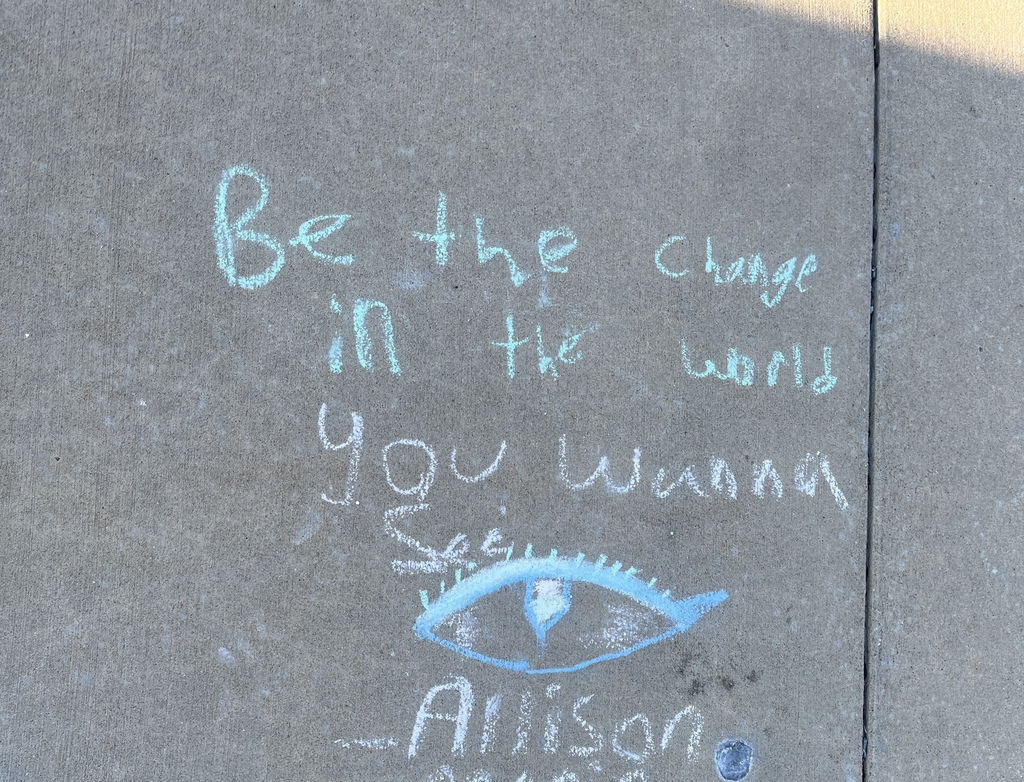 Be the change
in the world
you wunna
See
- Allison